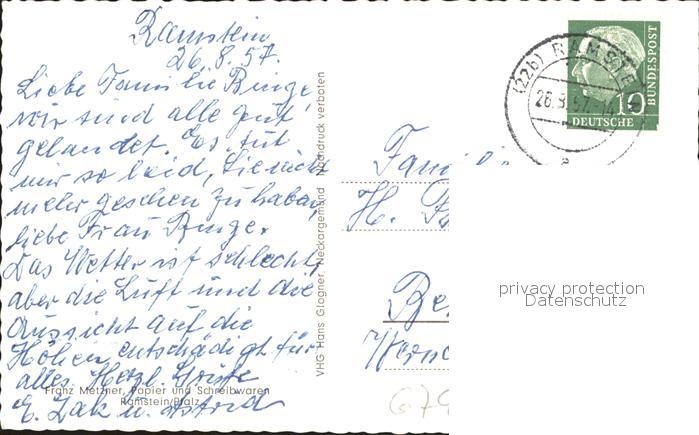 Ramstein
26.8.57.
Liebe Familie Binge,
wir sind alle gut
gelandet. Es tut
mir so leid, Sie nicht
mehr gesehen zu haben,
liebe Frau Binge.
Das Wetter ist schlecht,
aber die Luft und die
Aussicht auf die
Höhen entschädigt für
alles. Herzl. Grüße
E. Zak u. Astrid
Franz Metzner, Papier und Schreibwaren
Ramstein/Pfalz
VHG Hans Glogner, Neckargemünd Nachdruck verboten
(22b) RAMSTE
26.8.57.-14
a
10
DEUTSCHE
BUNDESPOST
Famili
H. B
Be
privacy protection
Datenschutz